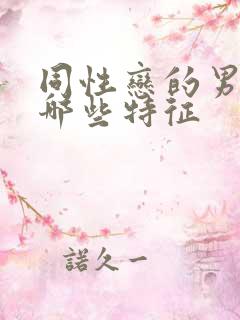 同性戀的男
哪些特征
諾久一